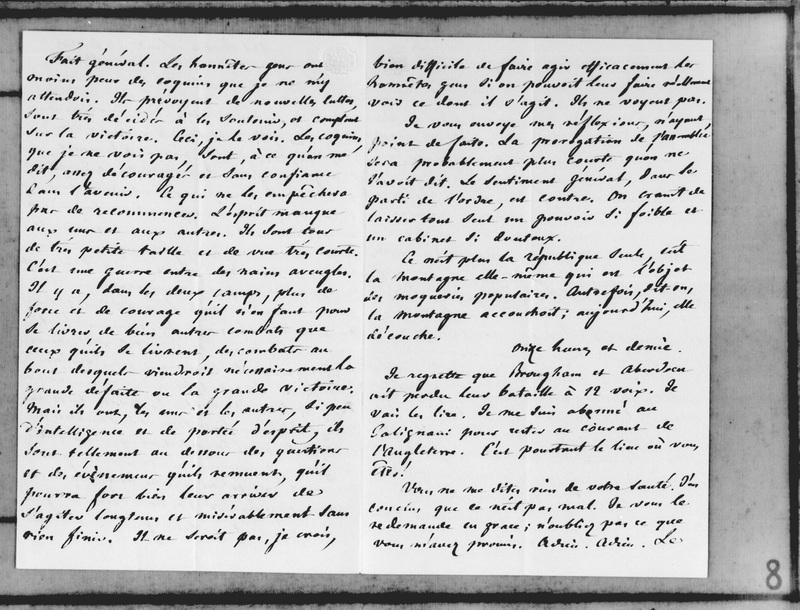 Fait général. Les honnêtes gens ont
moins peur des coquins que je ne m'y
attendois. Ils prévoyent de nouvelles luttes,
sont très décidés à les soutenir, et comptent
sur la victoire. Ceci, je le vois. Les coquins,
que je ne vois pas, sont, à ce qu'on me
dit, assez découragés et sans confiance
dans l'avenir. Ce qui ne les empêchera
pas de recommencer. L'esprit manque
aux uns et aux autres. Ils sont tous
de très petite taille et de vue très courte.
C'est une guerre entre des nains aveugles.
Il y a, dans les deux camps, plus de
force et de courage qu'il n'en faut pour
se livrer de bien autres combats que
ceux qu'ils se livrent, des combats au
bout desquels viendroit nécessairement la
grande défaite ou la grande victoire.
Mais ils ont, les uns et les autres, si peu
d'intelligence et de portée d'esprit, ils
sont tellement au dessous des questions
et des évènemens qu'ils remuent, qu'il
pourra fort bien leur arriver de
s'agiter longtems et misérablement sans
rien finir. Il ne seroit pas, je crois,
bien difficile de faire agir efficacement les
honnêtes gens si on pouvoit leur faire réellement
voir ce dont il s'agit. Ils ne voyent pas.
Je vous envoye mes réflexions, n'ayant
point de faits. La prorogation de l'assemblée
sera probablement plus courte qu'on ne
l'avoit dit. Le sentiment général, dans le
parti de l'ordre, est contre. On craint de
laisser tout seul un pouvoir si foible et
un cabinet si douteux.
Ce n'est plus la république seule, c'est
la montagne elle-même qui est l'objet
des moqueries populaires. Autrefois, dit-on,
la montagne accouchoit; aujourd'hui, elle
découche.
onze heures et demie.
Je regrette que Brougham et Aberdeen
ait perdu leur bataille à 12 voix. Je
vais les lire. Je me suis abonné au
Galignani pour rester au courant de
l'Angleterre. C'est pourtant le lieu où vous
êtes!
Vous ne me dites rien de votre santé. J'en
conclus que ce n'est pas mal. Je vous le
redemande en grace; n'oubliez pas ce que
vous m'avez promis. Adieu. Adieu. Le
8